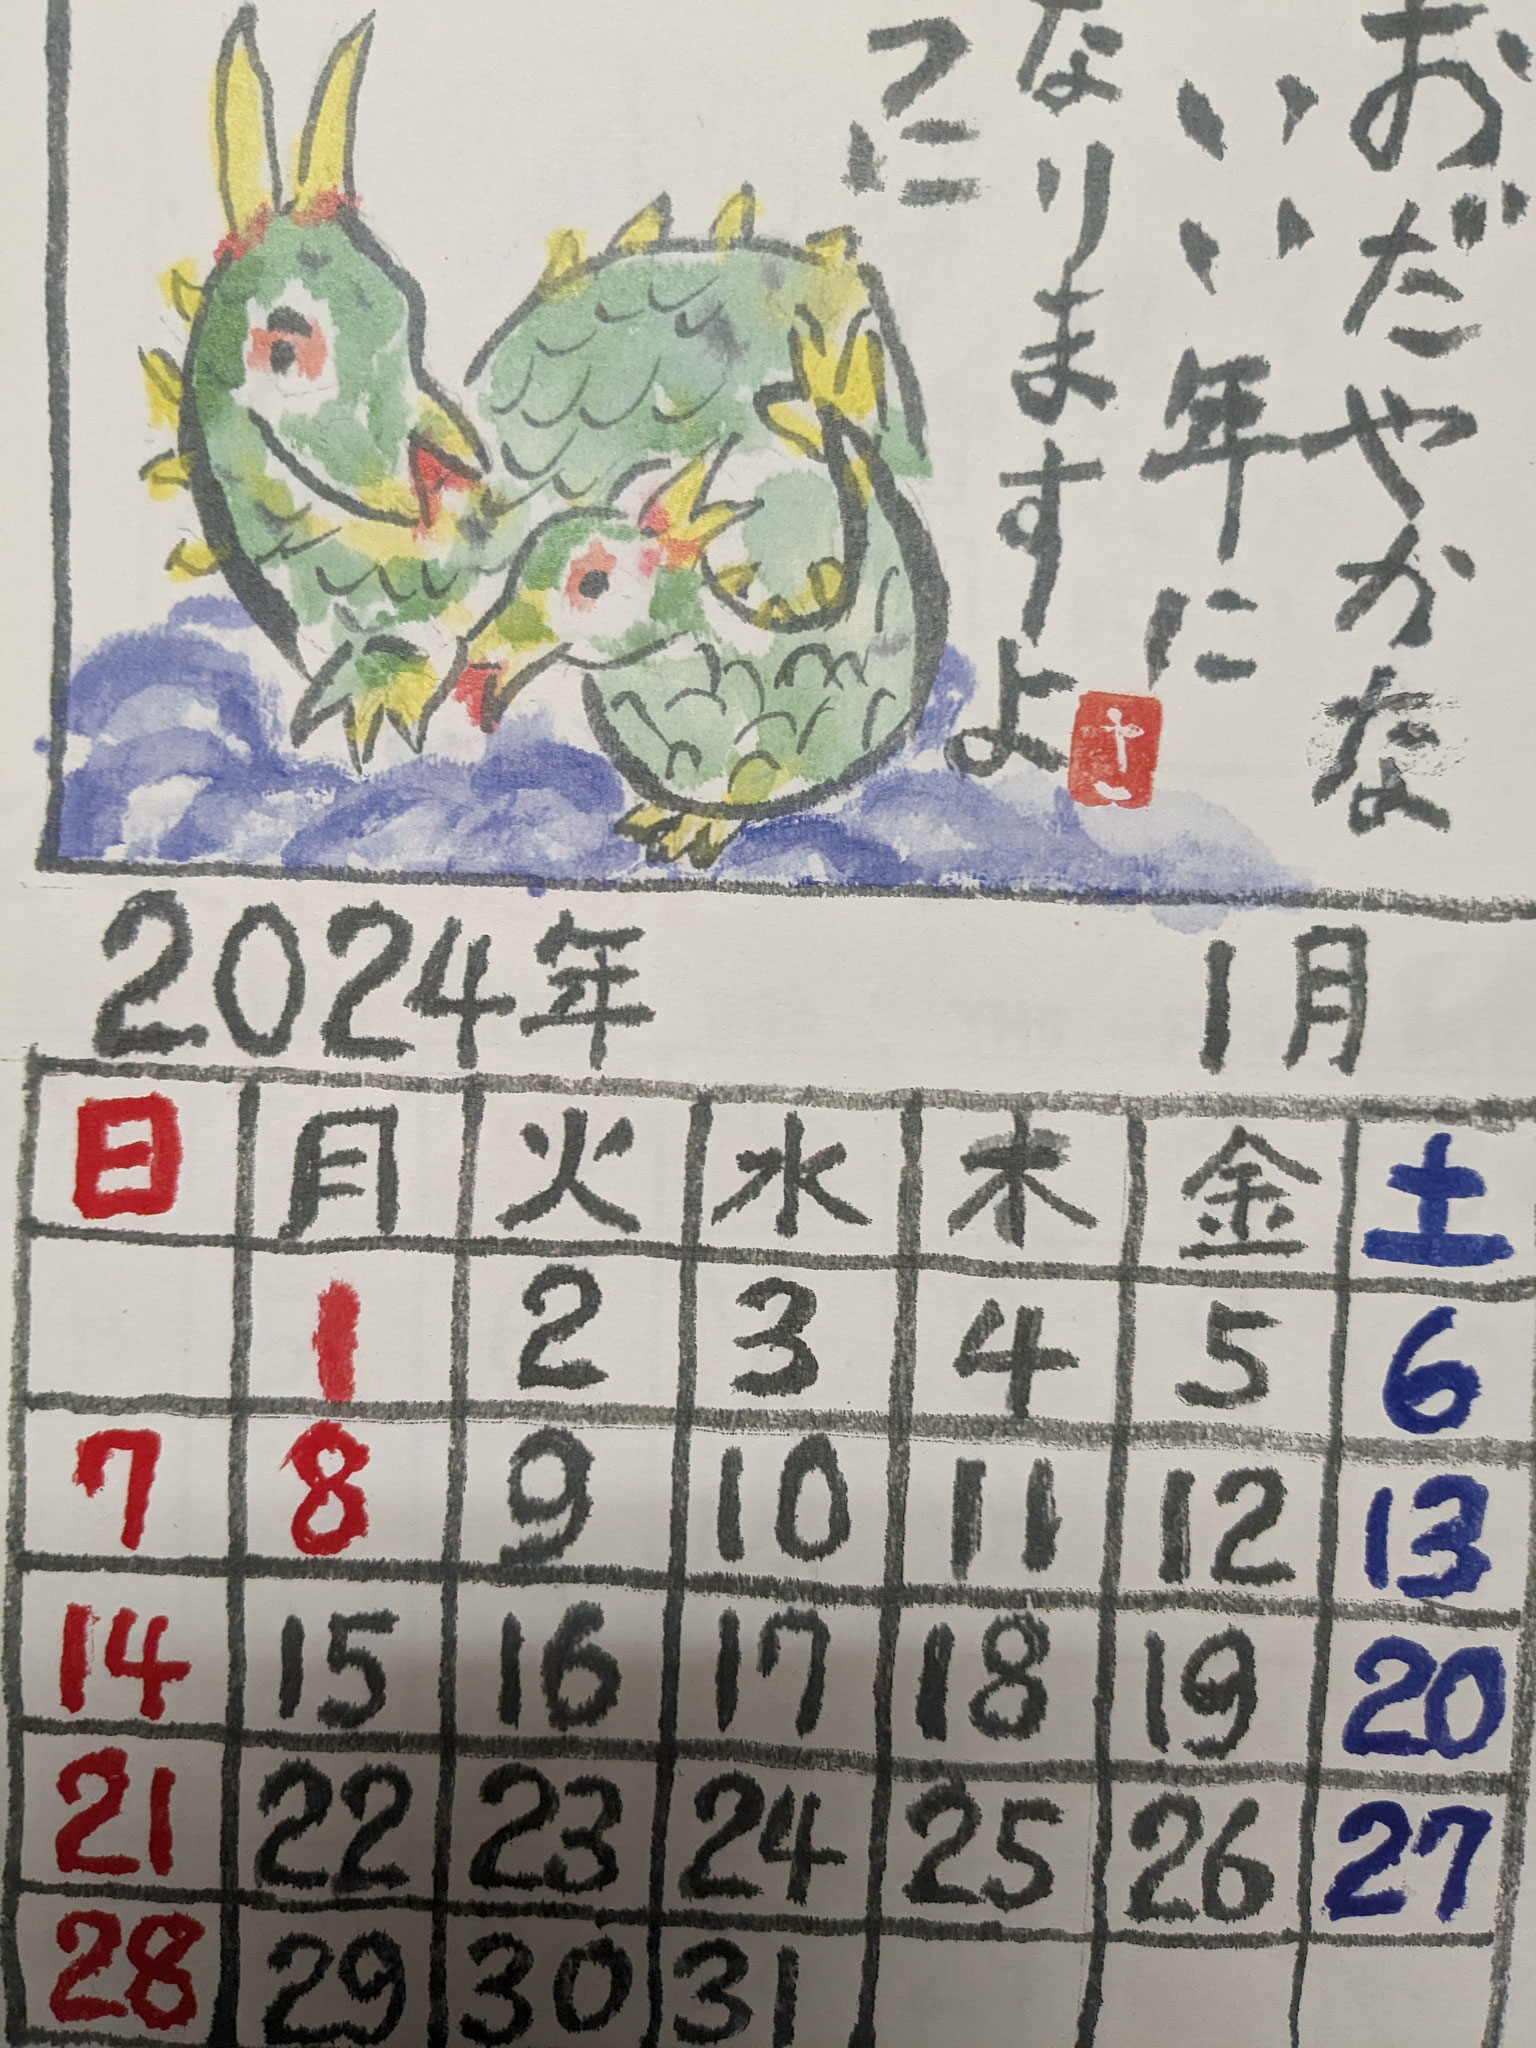 おだやかな
いい年に
なりますよ
に
2024年 1月
日 月 火 水 木 金 土
1 2 3 4 5 6
7 8 9 10 11 12 13
14 15 16 17 18 19 20
21 22 23 24 25 26 27
28 29 30 31